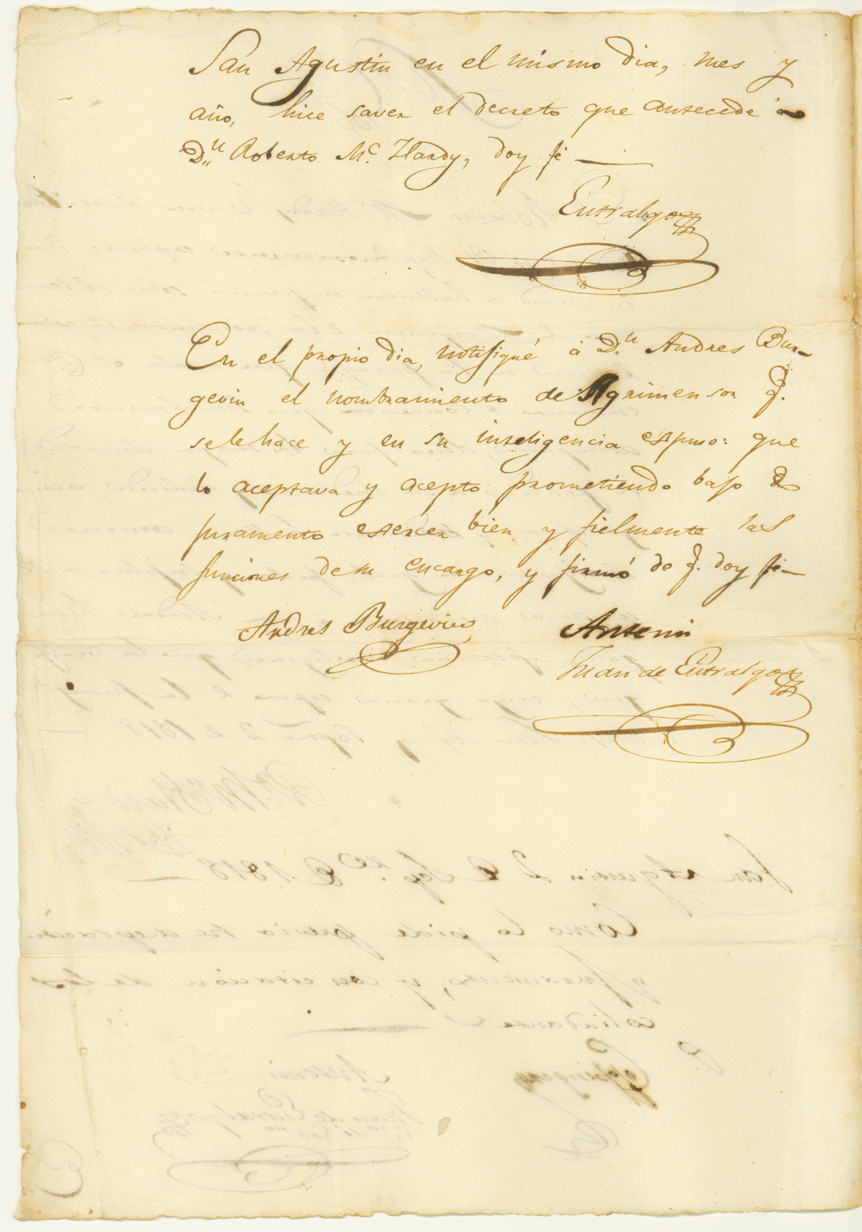 San Agustin en el mismo dia, mes y
año, hice saver el decreto que antecede á
Dn. Roberto Mc. Hardy, doy fé
Entralgo
En el propio dia, notifiqué á Dn. Andres Bur-
gevin el nombramiento de Agrimensor q.
sele hace y en su inteligencia espuso: que
lo aceptava y acepto prometiendo bajo de
juramento exercer bien y fielmente las
funciones de su encargo, y firmó de q. doy fé
Andres Burgevin
Antemi
Juan de Entralgo